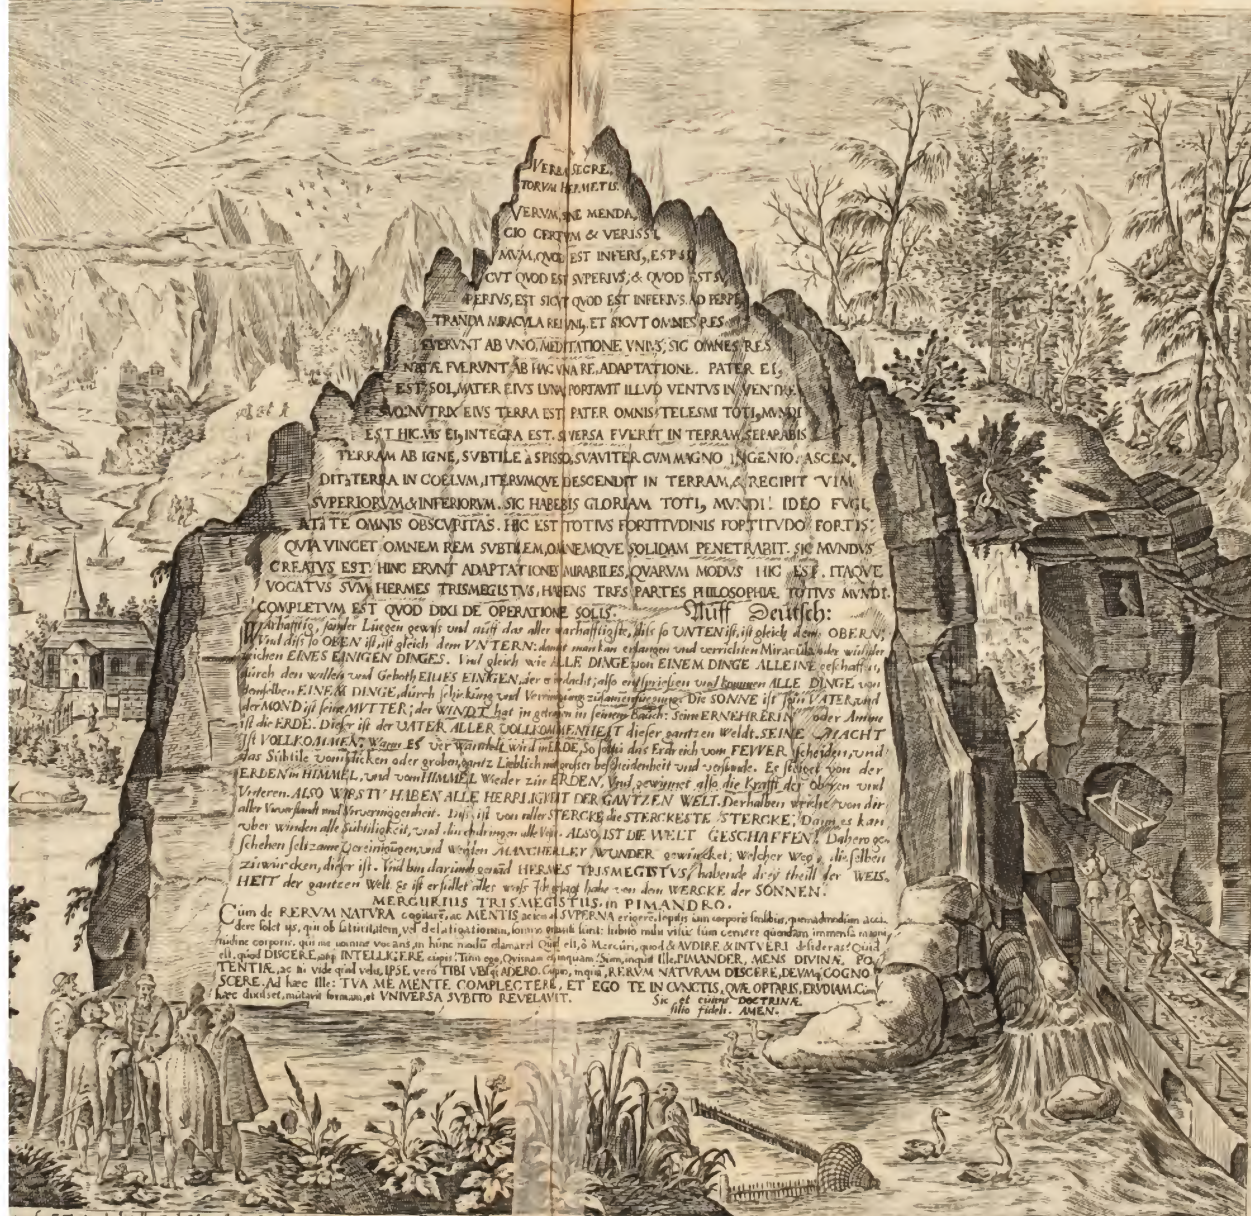 VERBA SECRE,
TORVM HERMETIS.
VERVM, SINE MENDA,
CIO CERTVM & VERISSI
MVM, QVOD EST INFERIVS, EST SI
CVT QVOD EST SVPERIVS, & QVOD EST SV,
PERIVS, EST SICVT QVOD EST INFERIVS. AD PERPE
TRANDA MIRACVLA REI VNIVS. ET SICVT OMNES RES
FVERVNT AB VNO, MEDITATIONE VNIVS, SIC OMNES RES
NATÆ FVERVNT AB HAC VNA RE, ADAPTATIONE. PATER EI,
EST SOL, MATER EIVS LVNA PORTAVIT ILLVD VENTVS IN VENTRE
SVO. NVTRIX EIVS TERRA EST PATER OMNIS TELESMI TOTI, MVNDI
EST HIC. VIS EI, INTEGRA EST. SI VERSA FVERIT IN TERRAM, SEPARABIS
TERRAM AB IGNE, SVBTILE à SPISSO, SVAVITER CVM MAGNO INGENIO. ASCEN,
DIT à TERRA IN COELVM, ITERVMQVE DESCENDIT IN TERRAM, & RECIPIT VIM
SVPERIORVM & INFERIORVM. SIC HABEBIS GLORIAM TOTI, MVNDI. IDEO FVGI,
AT à TE OMNIS OBSCVRITAS. HIC EST TOTIVS FORTITVDINIS FORTITVDO FORTIS:
QVIA VINCET OMNEM REM SVBTILEM, OMNEMQVE SOLIDAM PENETRABIT. SIC MVNDVS
CREATVS EST. HINC ERVNT ADAPTATIONES MIRABILES, QVARVM MODVS HIC EST. ITAQVE
VOCATVS SVM HERMES TRISMEGISTVS, HABENS TRES PARTES PHILOSOPHIÆ TOTIVS MVNDI.
COMPLETVM EST QVOD DIXI DE OPERATIONE SOLIS. Auff Deutsch:
Warhafftig, sonder Luegen gewiss und auff das aller warhafftigste, diss so UNTEN ist, ist gleich dem OBERN:
Vnd diss so OBEN ist, ist gleich dem VNTERN: damit man kan erlangen und verrichten Miracula oder wunder
zeichen EINES EINIGEN DINGES. Vnd gleich wie ALLE DINGE von EINEM DINGE ALLEINE geschaffen,
durch den willen und Geboth EINES EINIGEN, der es bedacht; also entspriessen und kommen ALLE DINGE von
demselben EINEM DINGE, durch schickung und Vereinigung zusammenfuegung. Die SONNE ist sein VATER, und
der MOND ist seine MVTTER; der WINDT hat in getragen in seinem Bauch: Seine ERNEHRERIN oder Amme
ist die ERDE. Dieser ist der VATER ALLER VOLLKOMMENHEIT dieser gantzen Weldt. SEINE MACHT
ist VOLLKOMMEN; Wann ES verwandelt wird in ERDE, So soltu das Erdreich vom FEWER scheiden, und
das Subtile vom dicken oder groben, gantz Lieblich mit grosser bescheidenheit und verstande. Es steiget von der
ERDEN in HIMMEL, und vom HIMMEL Wieder zur ERDEN, Vnd gewinnet also die Krafft der Obern und
Unteren. ALSO WIRSTV HABEN ALLE HERRLIGKEIT DER GANTZEN WELT. Derhalben weiche von dir
aller Vnverstandt und Vnvermögenheit. Diss ist von aller STERCKE die STERCKESTE STERCKE; Dann es kan
vber winden alle Subtiligkeit, und durchdringen alle Veste. ALSO IST DIE WELT GESCHAFFEN. Dahero ge,
schehen seltzame Vereinigungen, und werden MANCHERLEY WUNDER gewürcket; Welcher Weg, dieselben
zuwürcken, dieser ist. Vnd bin darumb genand HERMES TRISMEGISTVS, habende drey theill der WEIS,
HEIT der gantzen Welt. Es ist erfüllet alles wass Ich gesagt habe von dem WERCKE der SONNEN.
MERCURIUS TRISMEGISTUS, in PIMANDRO.
Cum de RERVM NATVRA cogitarem, ac MENTIS aciem ad SVPERNA erigerem, sopitis iam corporis sensibus, quemadmodum acci,
dere solet iis, qui ob saturitatem, vel defatigationem, somno gravati sunt: subito mihi visus sum cernere quendam immensa magni,
tudine corporis, qui me nomine vocans, in hunc modum clamaret. Quid est, ô Mercuri, quod & AVDIRE & INTVERI desideras? Quid
est, quod DISCERE, atq INTELLIGERE cupis? Tum ego, Quisnam es, inquam? Sum, inquit ille, PIMANDER, MENS DIVINÆ PO,
TENTIÆ, ac tu vide quid velis, IPSE vero TIBI VBIQ ADERO. Cupio, inquam, RERVM NATVRAM DISCERE, DEVMQ COGNO
SCERE. Ad hæc ille: TVA ME MENTE COMPLECTERE, ET EGO TE IN CVNCTIS, QVÆ OPTARIS, ERVDIAM. Cum
hæc dixisset, mutavit formam, et VNIVERSA SVBITO REVELAVIT.
Sic et eiusmodi DOCTRINÆ
filio fideli. AMEN.